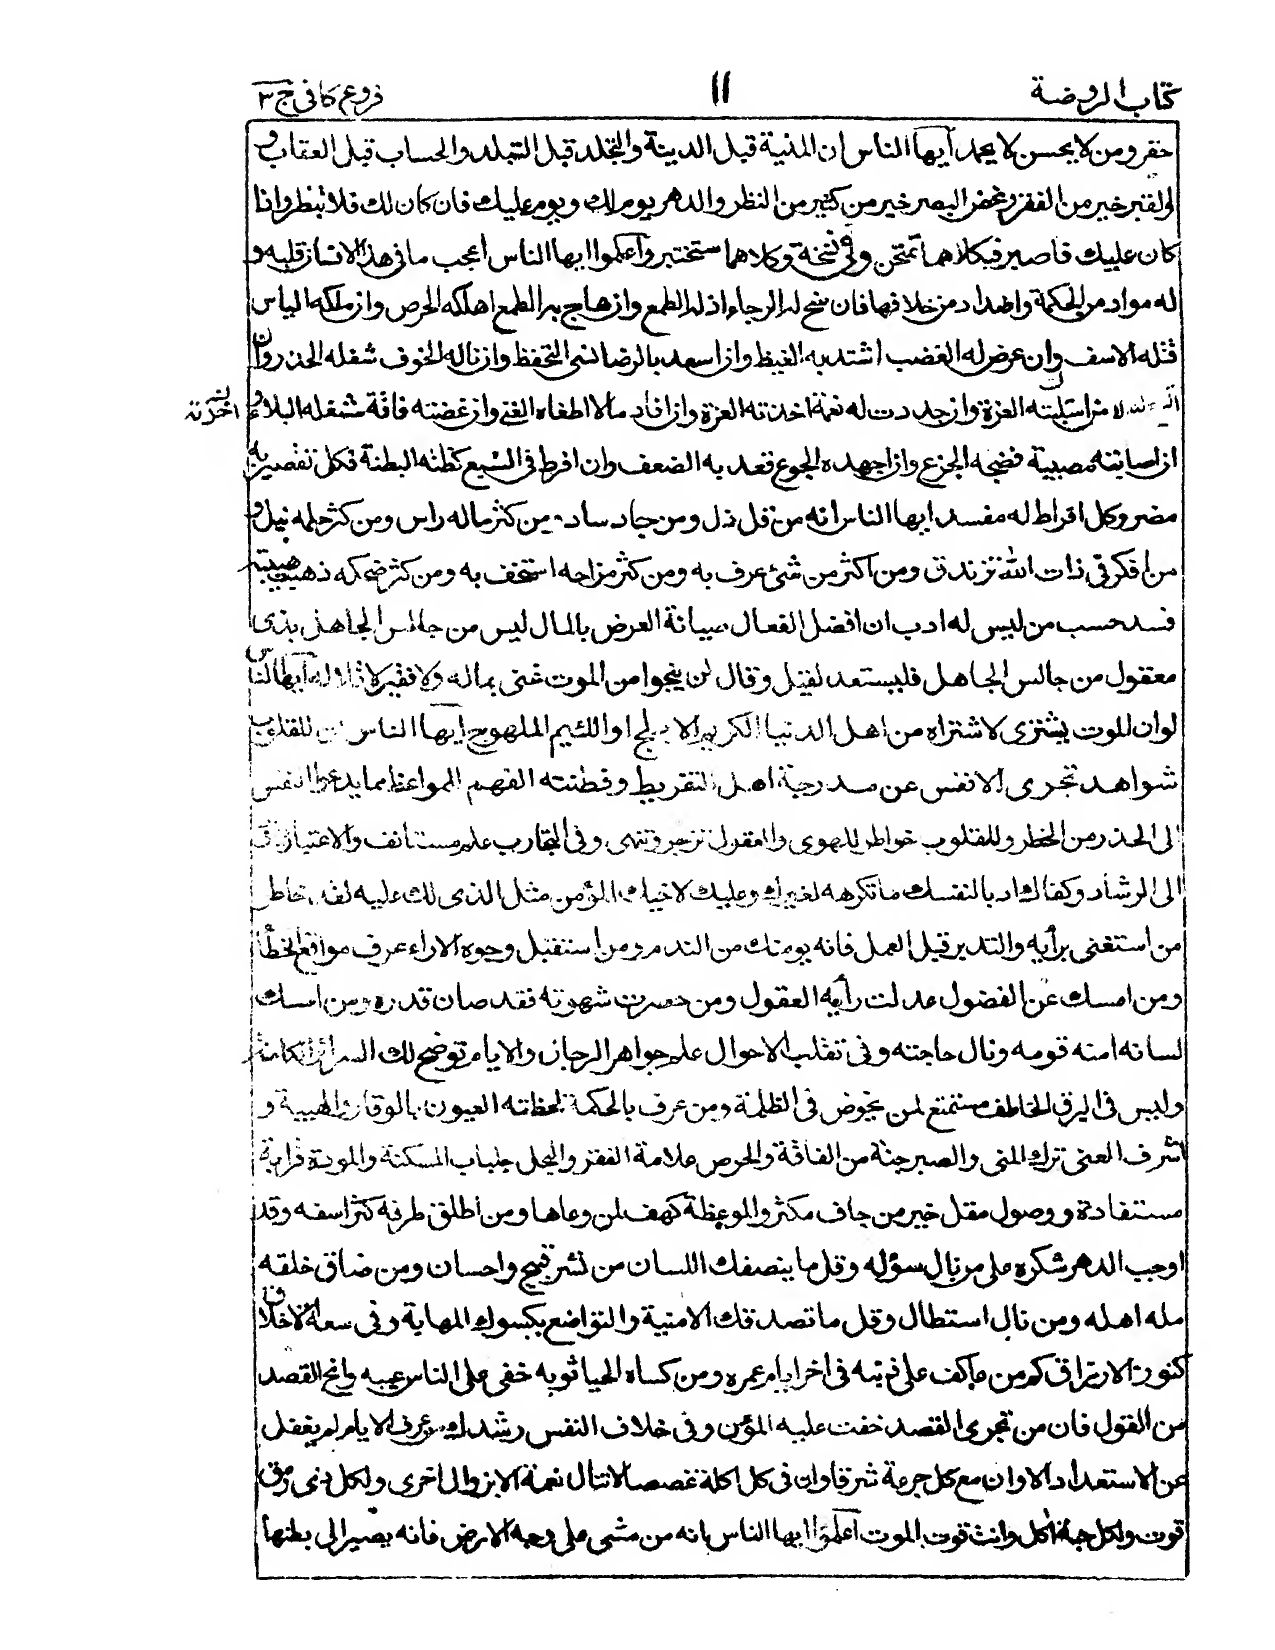 كتاب الروضة
١١
فروع كافى ج ٣
حقر ومن لا يحسن لا يحمد ايها الناس ان المنية قبل الدينة والتجلد قبل التبلد والحساب قبل العقاب و
القبر خير من الفقر وغض البصر خير من كثير من النظر والدهر يوم لك ويوم عليك فان كان لك فلا تبطر واذا
كان عليك فاصبر فبكلاهما تمتحن وفى نسخة وكلاهما ستختبر واعلموا ايها الناس اعجب ما فى هذا الانسان قلبه و
له مواد من الحكمة واضداد من خلافها فان سنح له الرجاء اذله الطمع وان هاج به الطمع اهلكه الحرص وان ملكه الياس
قتله الاسف وان عرض له الغضب اشتد به الغيظ وان اسعد بالرضا نسى التحفظ وان ناله الخوف شغله الحذر وان
استلبته العزة وان جددت له نعمة اخذته العزة وان افاد مالا اطغاه الغنى وان عضته فاقة شغله البلاء و
اخذته
ان اصابته مصيبة فضحه الجزع وان اجهده الجوع قعد به الضعف وان افرط فى الشبع كظته البطنة فكل تقصير به
مضر وكل افراط له مفسد ايها الناس انه من قل ذل ومن جاد ساد ومن كثر ماله راس ومن كثر حلمه نبل و
من افكر فى ذات الله تزندق ومن اكثر من شئ عرف به ومن كثر مزاحه استخف به ومن كثر ضحكه ذهبت هيبته
فسد حسب من ليس له ادب ان افضل الفعال صيانة العرض بالمال ليس من جالس الجاهل بذى
معقول من جالس الجاهل فليستعد لقيل وقال لن ينجوا من الموت غنى بماله ولا فقير لاقلاله ايها الناس
لو ان الموت يشترى لاشتراه من اهل الدنيا الكريم الابلج او اللئيم الملهوج ايها الناس ان للقلوب
شواهد تجرى الانفس عن مدرجة اهل التقريط وفطنته الفهم للمواعظ مما يدعو النفس
الى الحذر من الخطر وللقلوب خواطر للهوى والعقول تزجر وتنهى وفى التجارب علم مستانف والاعتبار
الى الرشاد وكفاك ادبا لنفسك ما تكرهه لغيرك وعليك لاخيك المؤمن مثل الذى لك عليه لقد خاطر
من استغنى برأيه والتدبر قبل العمل فانه يومنك من الندم ومن استقبل وجوه الاراء عرف مواقع الخطأ
ومن امسك عن الفضول عدلت رأيه العقول ومن حصرت شهوته فقد صان قدره ومن امسك
لسانه امنه قومه ونال حاجته وفى تقلب الاحوال علم جواهر الرجال والايام توضح لك السرائر الكامنة
وليس فى البرق الخاطف مستمتع لمن يخوض فى الظلمة ومن عرف بالحكمة لحظته العيون بالوقار والهيبة و
اشرف الغنى ترك المنى والصبر جنة من الفاقة والحرص علامة الفقر والبخل جلباب المسكنة والمودة قرابة
مستفادة ووصول مقل خير من جاف مكثر والموعظة كهف لمن وعاها ومن اطلق طرفه كثر اسفه وقد
اوجب الدهر شكره على من نال سؤله وقل ما ينصفك اللسان من نشر قبيح واحسان ومن ضاق خلقه
مله اهله ومن نال استطال وقل ما تصدقك الامنية والتواضع يكسوك المهابة وفى سعة الاخلاق
كنوز الارزاق كم من عاكف على ذنبه فى اخر ايام عمره ومن كساه الحيا ثوبه خفى على الناس عيبه وانح القصد
من القول فان من تحرى القصد خفت عليه المؤن وفى خلاف النفس رشدك من عرف الايام لم يغفل
عن الاستعداد الا وان مع كل جرعة شرقا وان فى كل اكلة غصصا لا تنال نعمة الا بزوال اخرى ولكل ذى رمق
قوت ولكل حبة اكل وانت قوت الموت اعلموا ايها الناس بانه من مشى على وجه الارض فانه يصير الى بطنها